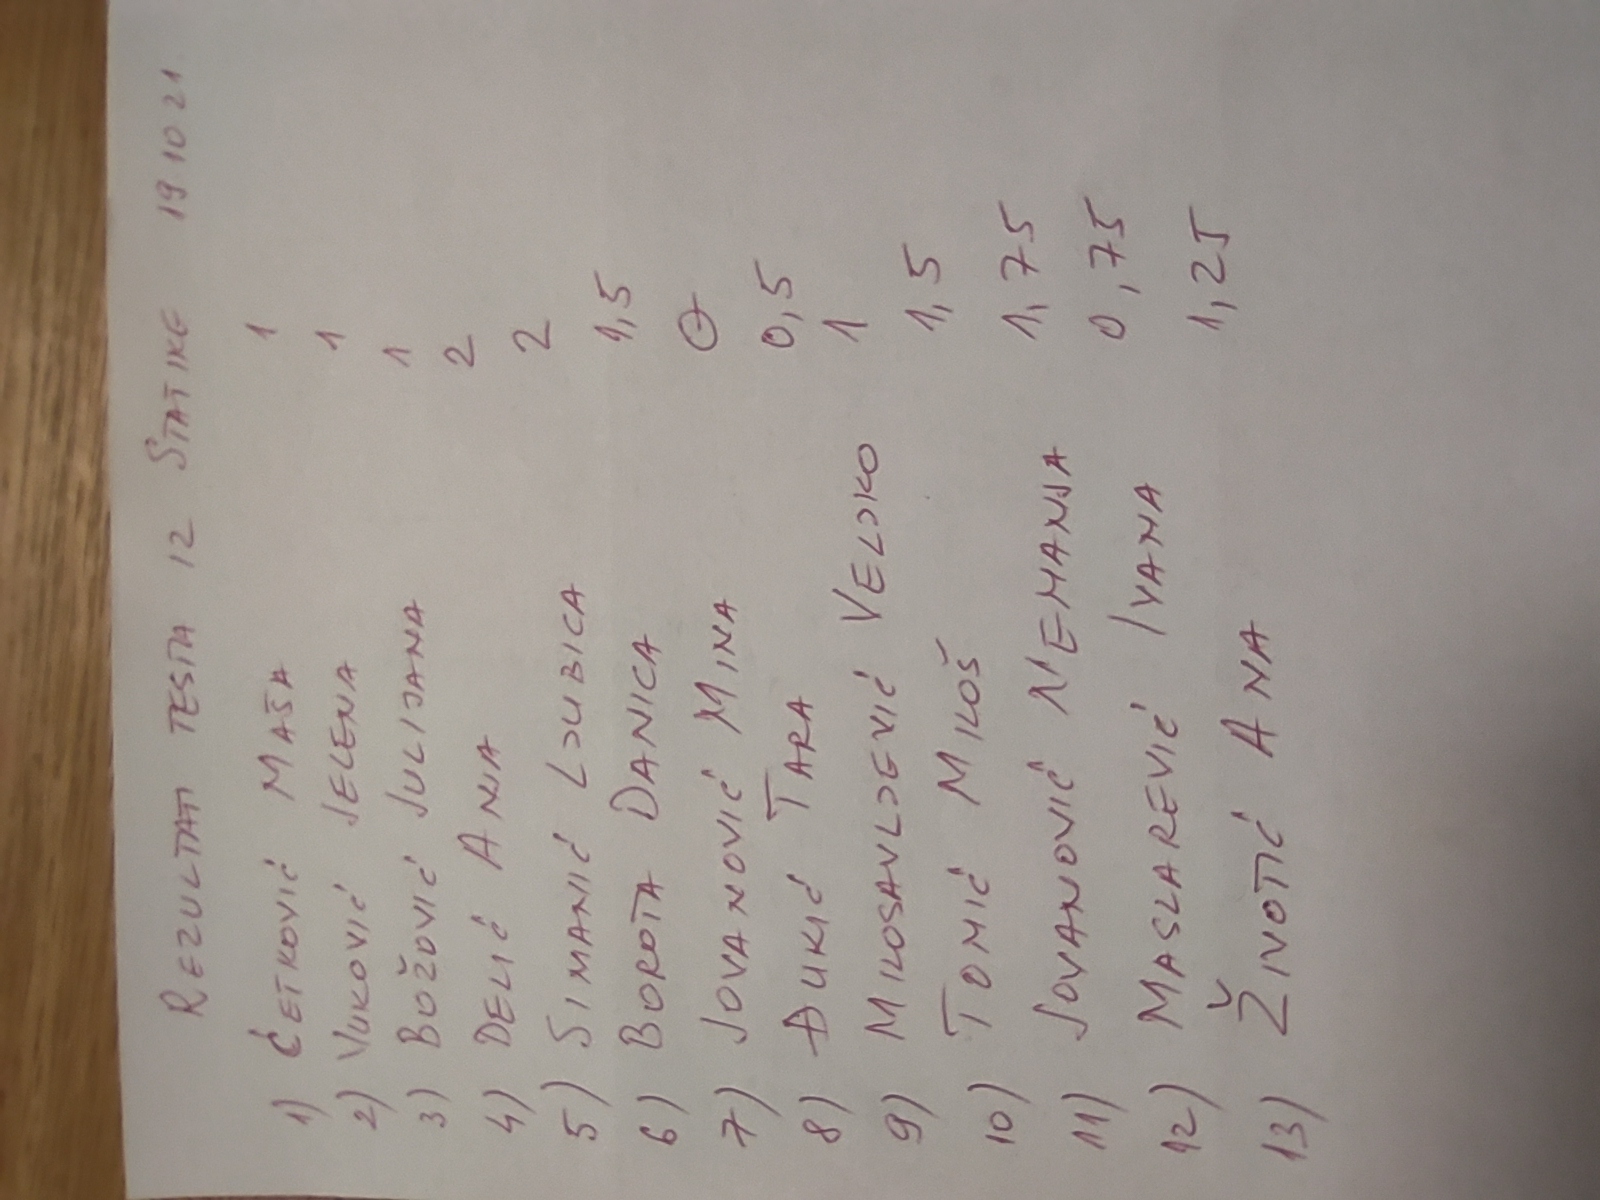 REZULTATI TESTA 12 STATIKE 19 10 21
1) ĆETKOVIĆ MAŠA 1
2) VUKOVIĆ JELENA 1
3) BOŽOVIĆ JULIJANA 1
4) DELIĆ ANJA 2
5) SIMANIĆ LJUBICA 2
6) BOROTA DANICA 1,5
7) JOVANOVIĆ MINA 0
8) ĐUKIĆ TARA 0,5
9) MILOSAVLJEVIĆ VELJKO 1
10) TOMIĆ MILOŠ 1,5
11) JOVANOVIĆ NEMANJA 1,75
12) MASLAREVIĆ IVANA 0,75
13) ŽIVOTIĆ ANA 1,25